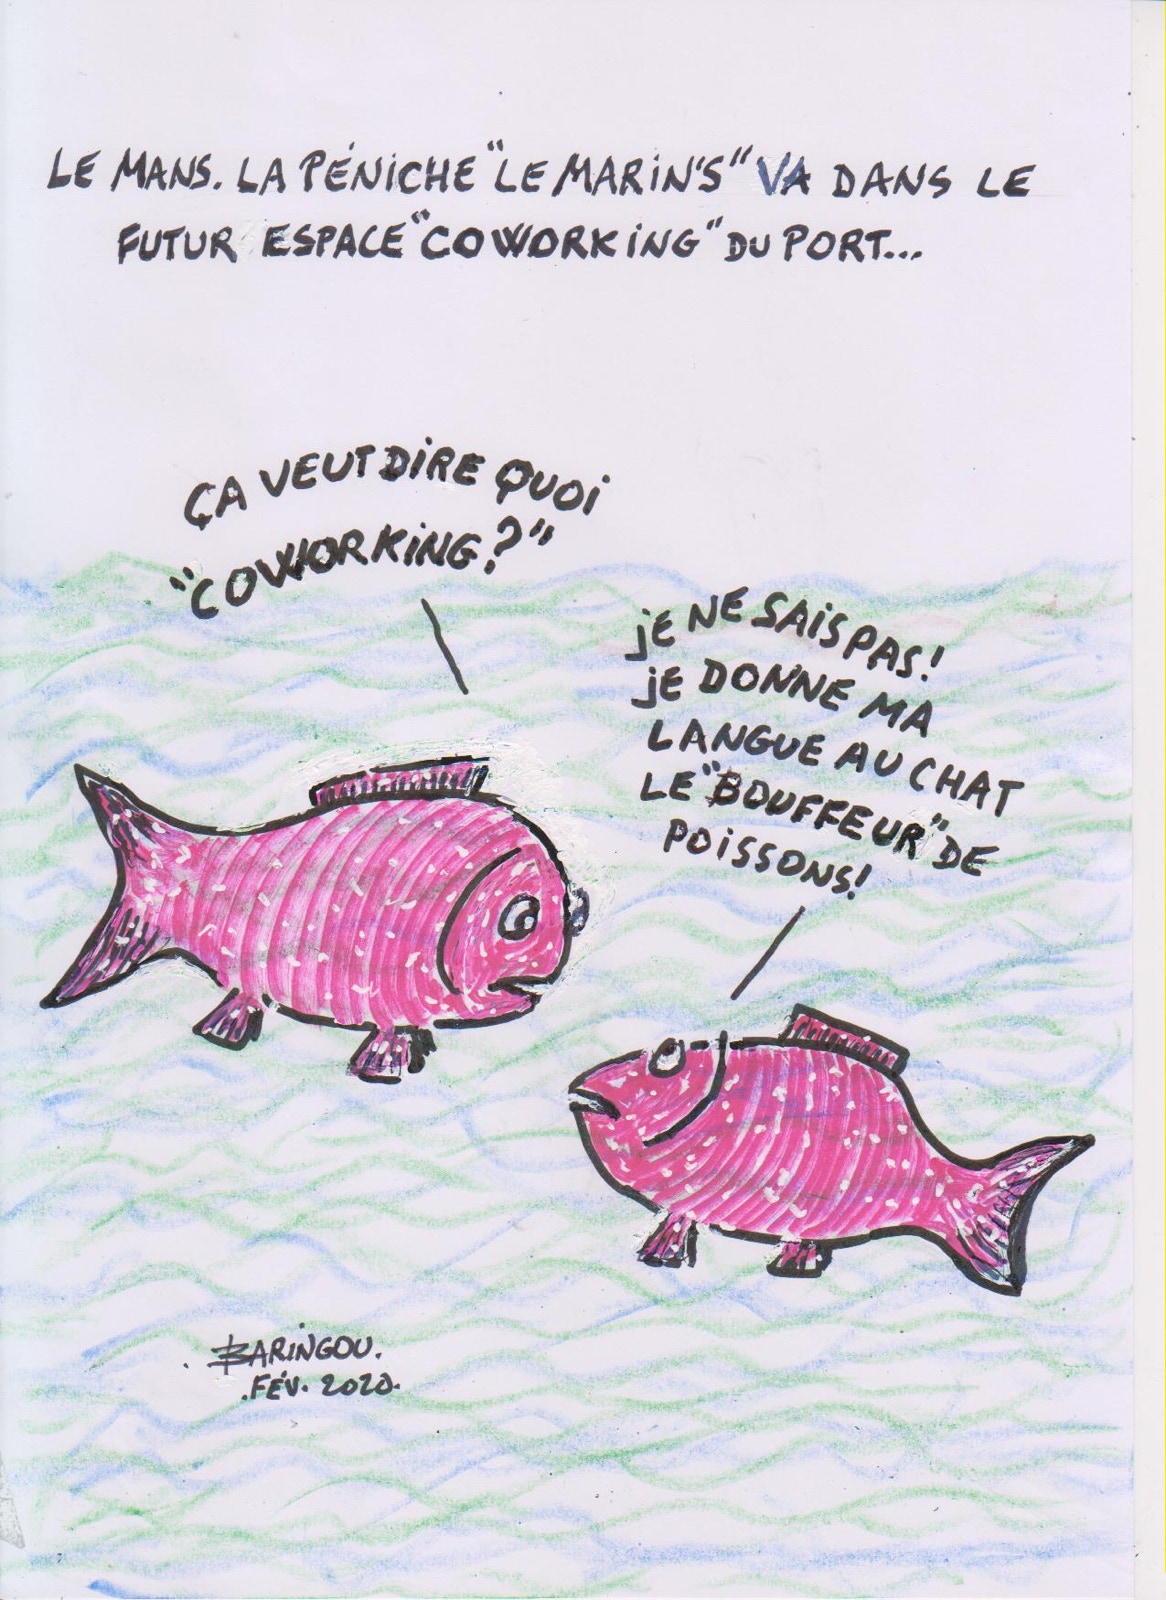 LE MANS. LA PÉNICHE "LE MARIN'S" VA DANS LE
FUTUR ESPACE "COWORKING" DU PORT...
ÇA VEUT DIRE QUOI
"COWORKING?"
JE NE SAIS PAS!
JE DONNE MA
LANGUE AU CHAT
LE "BOUFFEUR" DE
POISSONS!
BARINGOU.
.FÉV. 2020.